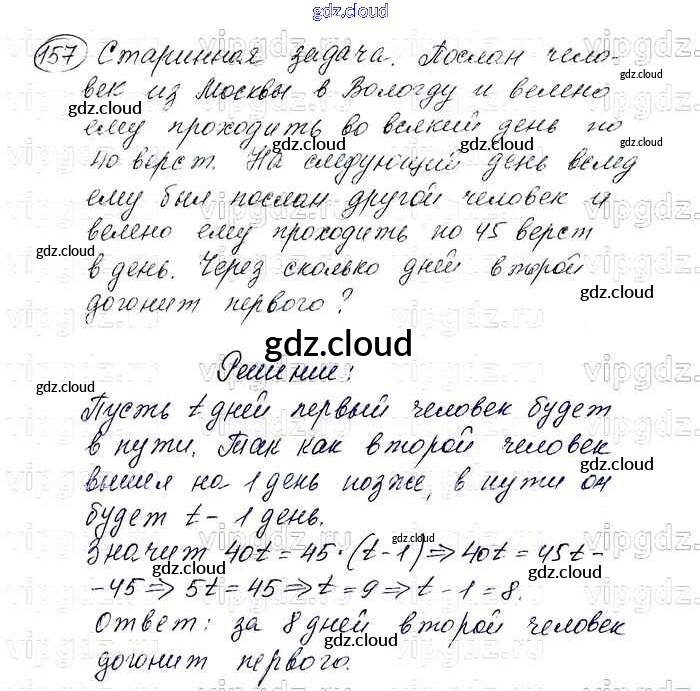 gdz.cloud
157 Старинная задача. Послан чело-
век из Москвы в Вологду и велено
gdz.cloud
ему проходить во всякий день по
40 верст. На следующий день вслед
ему был послан другой человек и
велено ему проходить по 45 верст
в день. Через сколько дней второй
догонит первого?
gdz.cloud
Решение:
Пусть t дней первый человек будет
в пути. Так как второй человек
вышел на 1 день позже, в пути он
будет t - 1 день.
Значит 40t = 45·(t-1) ⇒ 40t = 45t-
-45 ⇒ 5t = 45 ⇒ t = 9 ⇒ t - 1 = 8.
Ответ: за 8 дней второй человек
догонит первого.